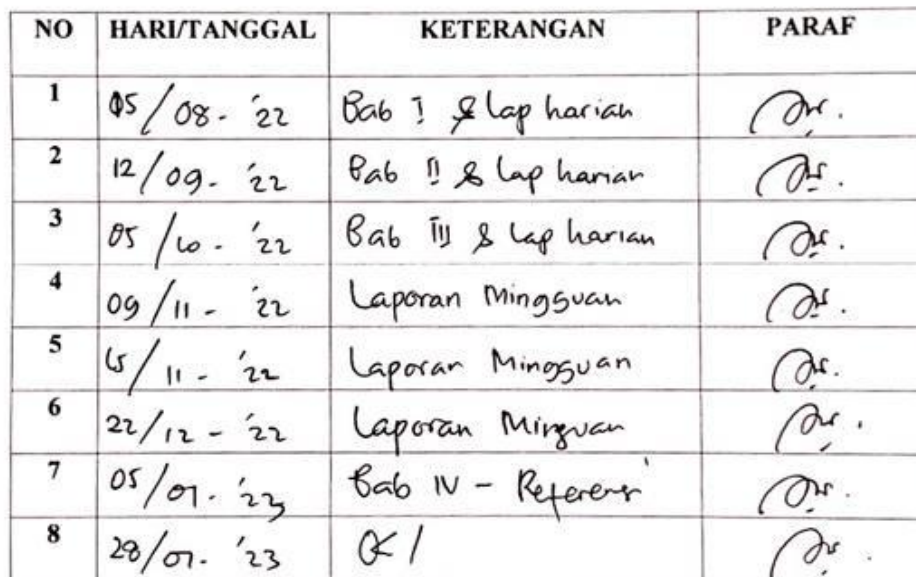 NO HARI/TANGGAL KETERANGAN PARAF
1 05/08-'22 Bab I & lap harian
2 12/09-'22 Bab II & lap harian
3 05/10-'22 Bab III & lap harian
4 09/11-'22 Laporan Mingguan
5 15/11-'22 Laporan Mingguan
6 22/12-'22 Laporan Minguan
7 05/01-'23 Bab IV - Referensi
8 28/01-'23